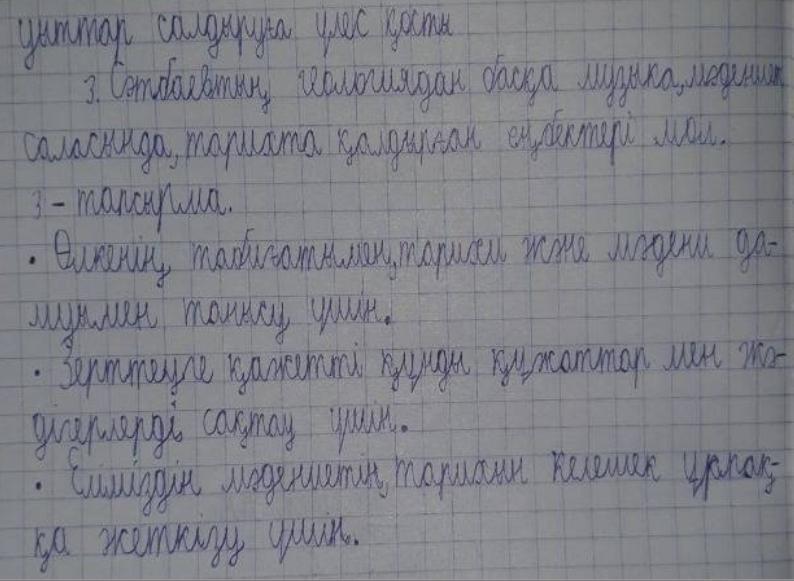 цыттар салдыруға үлес қосты
3. Сәтбаевтың геологиядан басқа музыка, мәдениет
саласында, тарихта қалдырған еңбектері мол.
3 - тапсырма.
• Өлкенің табиғатымен, тарихи және мәдени да-
муымен танысу үшін.
• Зерттеуге қажетті құнды құжаттар мен жә-
дігерлерді сақтау үшін.
• Еліміздің мәдениетін, тарихын келешек ұрпақ-
қа жеткізу үшін.